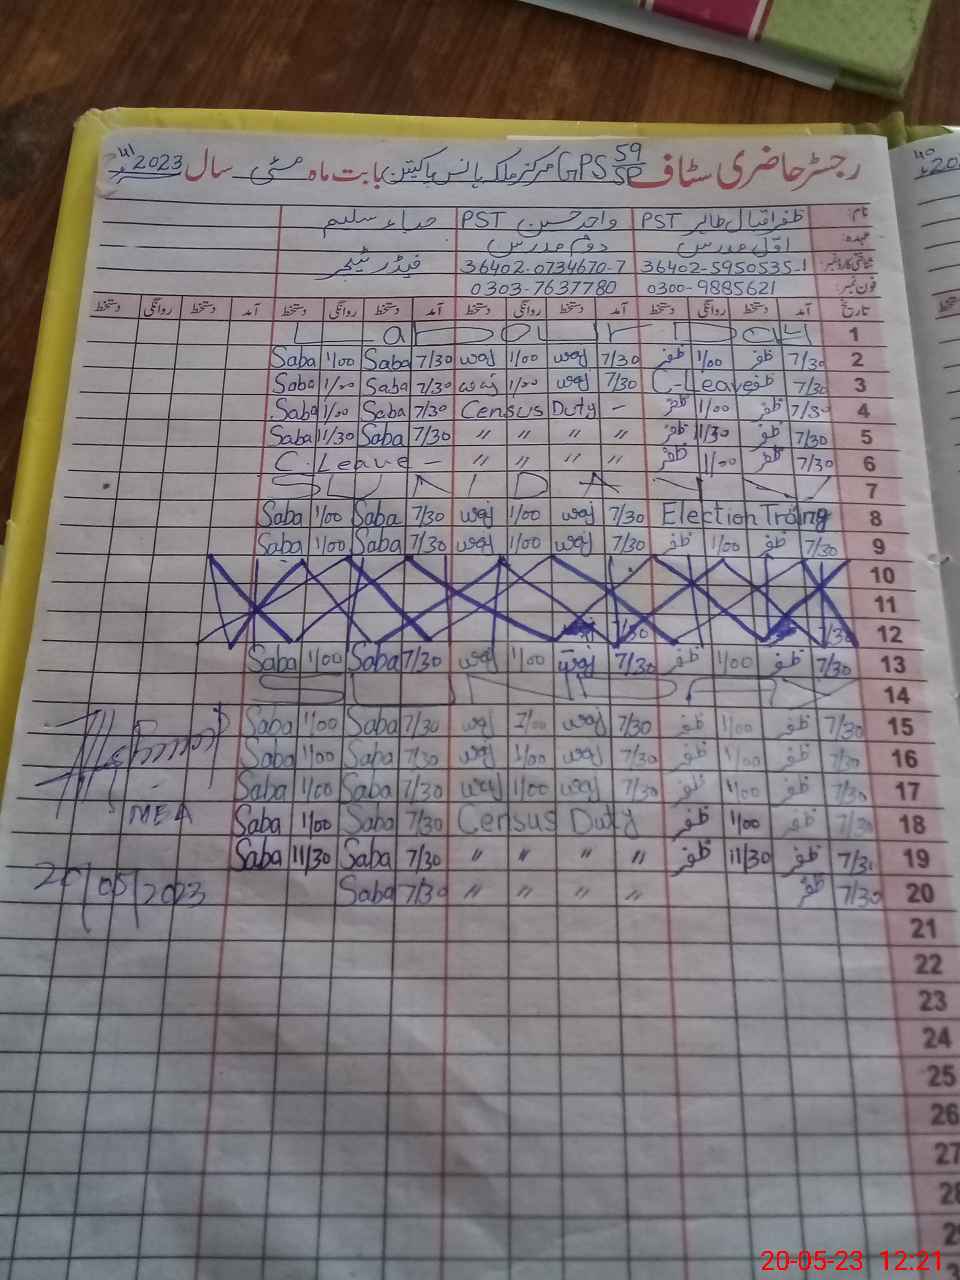 رجسٹر حاضری سٹاف GPS 59/SP مرکز ملکہ ہانس پاکپتن بابت ماہ مئی سال 2023ء
41
40
نام: ظفر اقبال طاہر PST واجد حسین PST صباء سلیم
عہدہ: اوّل مدرس دوئم مدرس
شناختی کارڈ نمبر: 36402-5950535-1 36402-0734670-7 فیڈر ٹیچر
فون نمبر: 0300-9885621 0303-7637780
تاریخ آمد دستخط روانگی دستخط آمد دستخط روانگی دستخط آمد دستخط روانگی دستخط آمد دستخط روانگی دستخط
1
2 7/30 ظفر 1/00 ظفر 7/30 waj 1/00 waj 7/30 Saba 1/00 Saba
3 7/30 ظفر C-Leave 7/30 waj 1/00 waj 7/30 Saba 1/00 Saba
4 7/30 ظفر 1/00 ظفر Census Duty - 7/30 Saba 1/00 Saba
5 7/30 ظفر 11/30 ظفر " " " " 7/30 Saba 11/30 Saba
6 7/30 ظفر 1/00 ظفر " " " " C. Leave -
7
8 Election Traing 7/30 waj 1/00 waj 7/30 Saba 1/00 Saba
9 7/30 ظفر 1/00 ظفر 7/30 waj 1/00 waj 7/30 Saba 1/00 Saba
10
11
12 7/30 7/30
13 7/30 ظفر 1/00 ظفر 7/30 waj 1/00 waj 7/30 Saba 1/00 Saba
14
15 7/30 ظفر 1/00 ظفر 7/30 waj 1/00 waj 7/30 Saba 1/00 Saba
16 7/30 ظفر 1/00 ظفر 7/30 waj 1/00 waj 7/30 Saba 1/00 Saba
17 7/30 ظفر 1/00 ظفر 7/30 waj 1/00 waj 7/30 Saba 1/00 Saba
18 7/30 ظفر 1/00 ظفر Census Duty 7/30 Saba 1/00 Saba
MEA
19 7/30 ظفر 11/30 ظفر " " " " 7/30 Saba 11/30 Saba
20 7/30 ظفر " " " " 7/30 Saba
20/05/2023
21
22
23
24
25
26
27
28
20-05-23 12:21